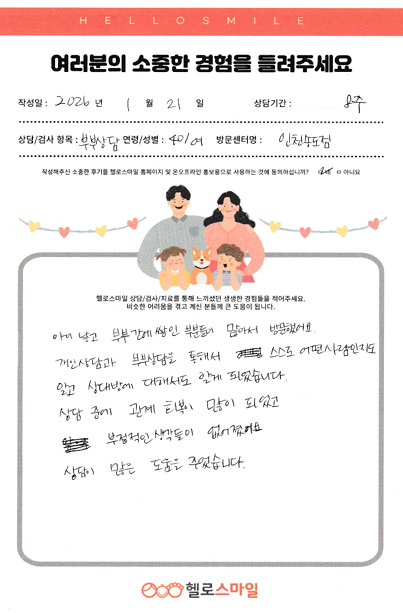 HELLOSMILE
여러분의 소중한 경험을 들려주세요
작성일 : 2026 년 1 월 21 일 상담기간 : 8주
상담/검사 항목 : 부부상담 연령/성별 : 40/여 방문센터명 : 인천송도점
작성해주신 소중한 후기를 헬로스마일 홈페이지 및 온오프라인 홍보용으로 사용하는 것에 동의하십니까? ㅁ 아니요
헬로스마일 상담/검사/치료를 통해 느끼셨던 생생한 경험들을 적어주세요.
비슷한 어려움을 겪고 계신 분들께 큰 도움이 됩니다.
아이 낳고 부부간에 쌓인 부분들이 많아서 방문했어요.
개인상담과 부부상담을 통해서 스스로 어떤사람인지도
알고 상대방에 대해서도 알게 되었습니다.
상담 중에 관계 회복이 많이 되었고
부정적인 생각들이 없어졌어요
상담이 많은 도움을 주었습니다.
헬로스마일